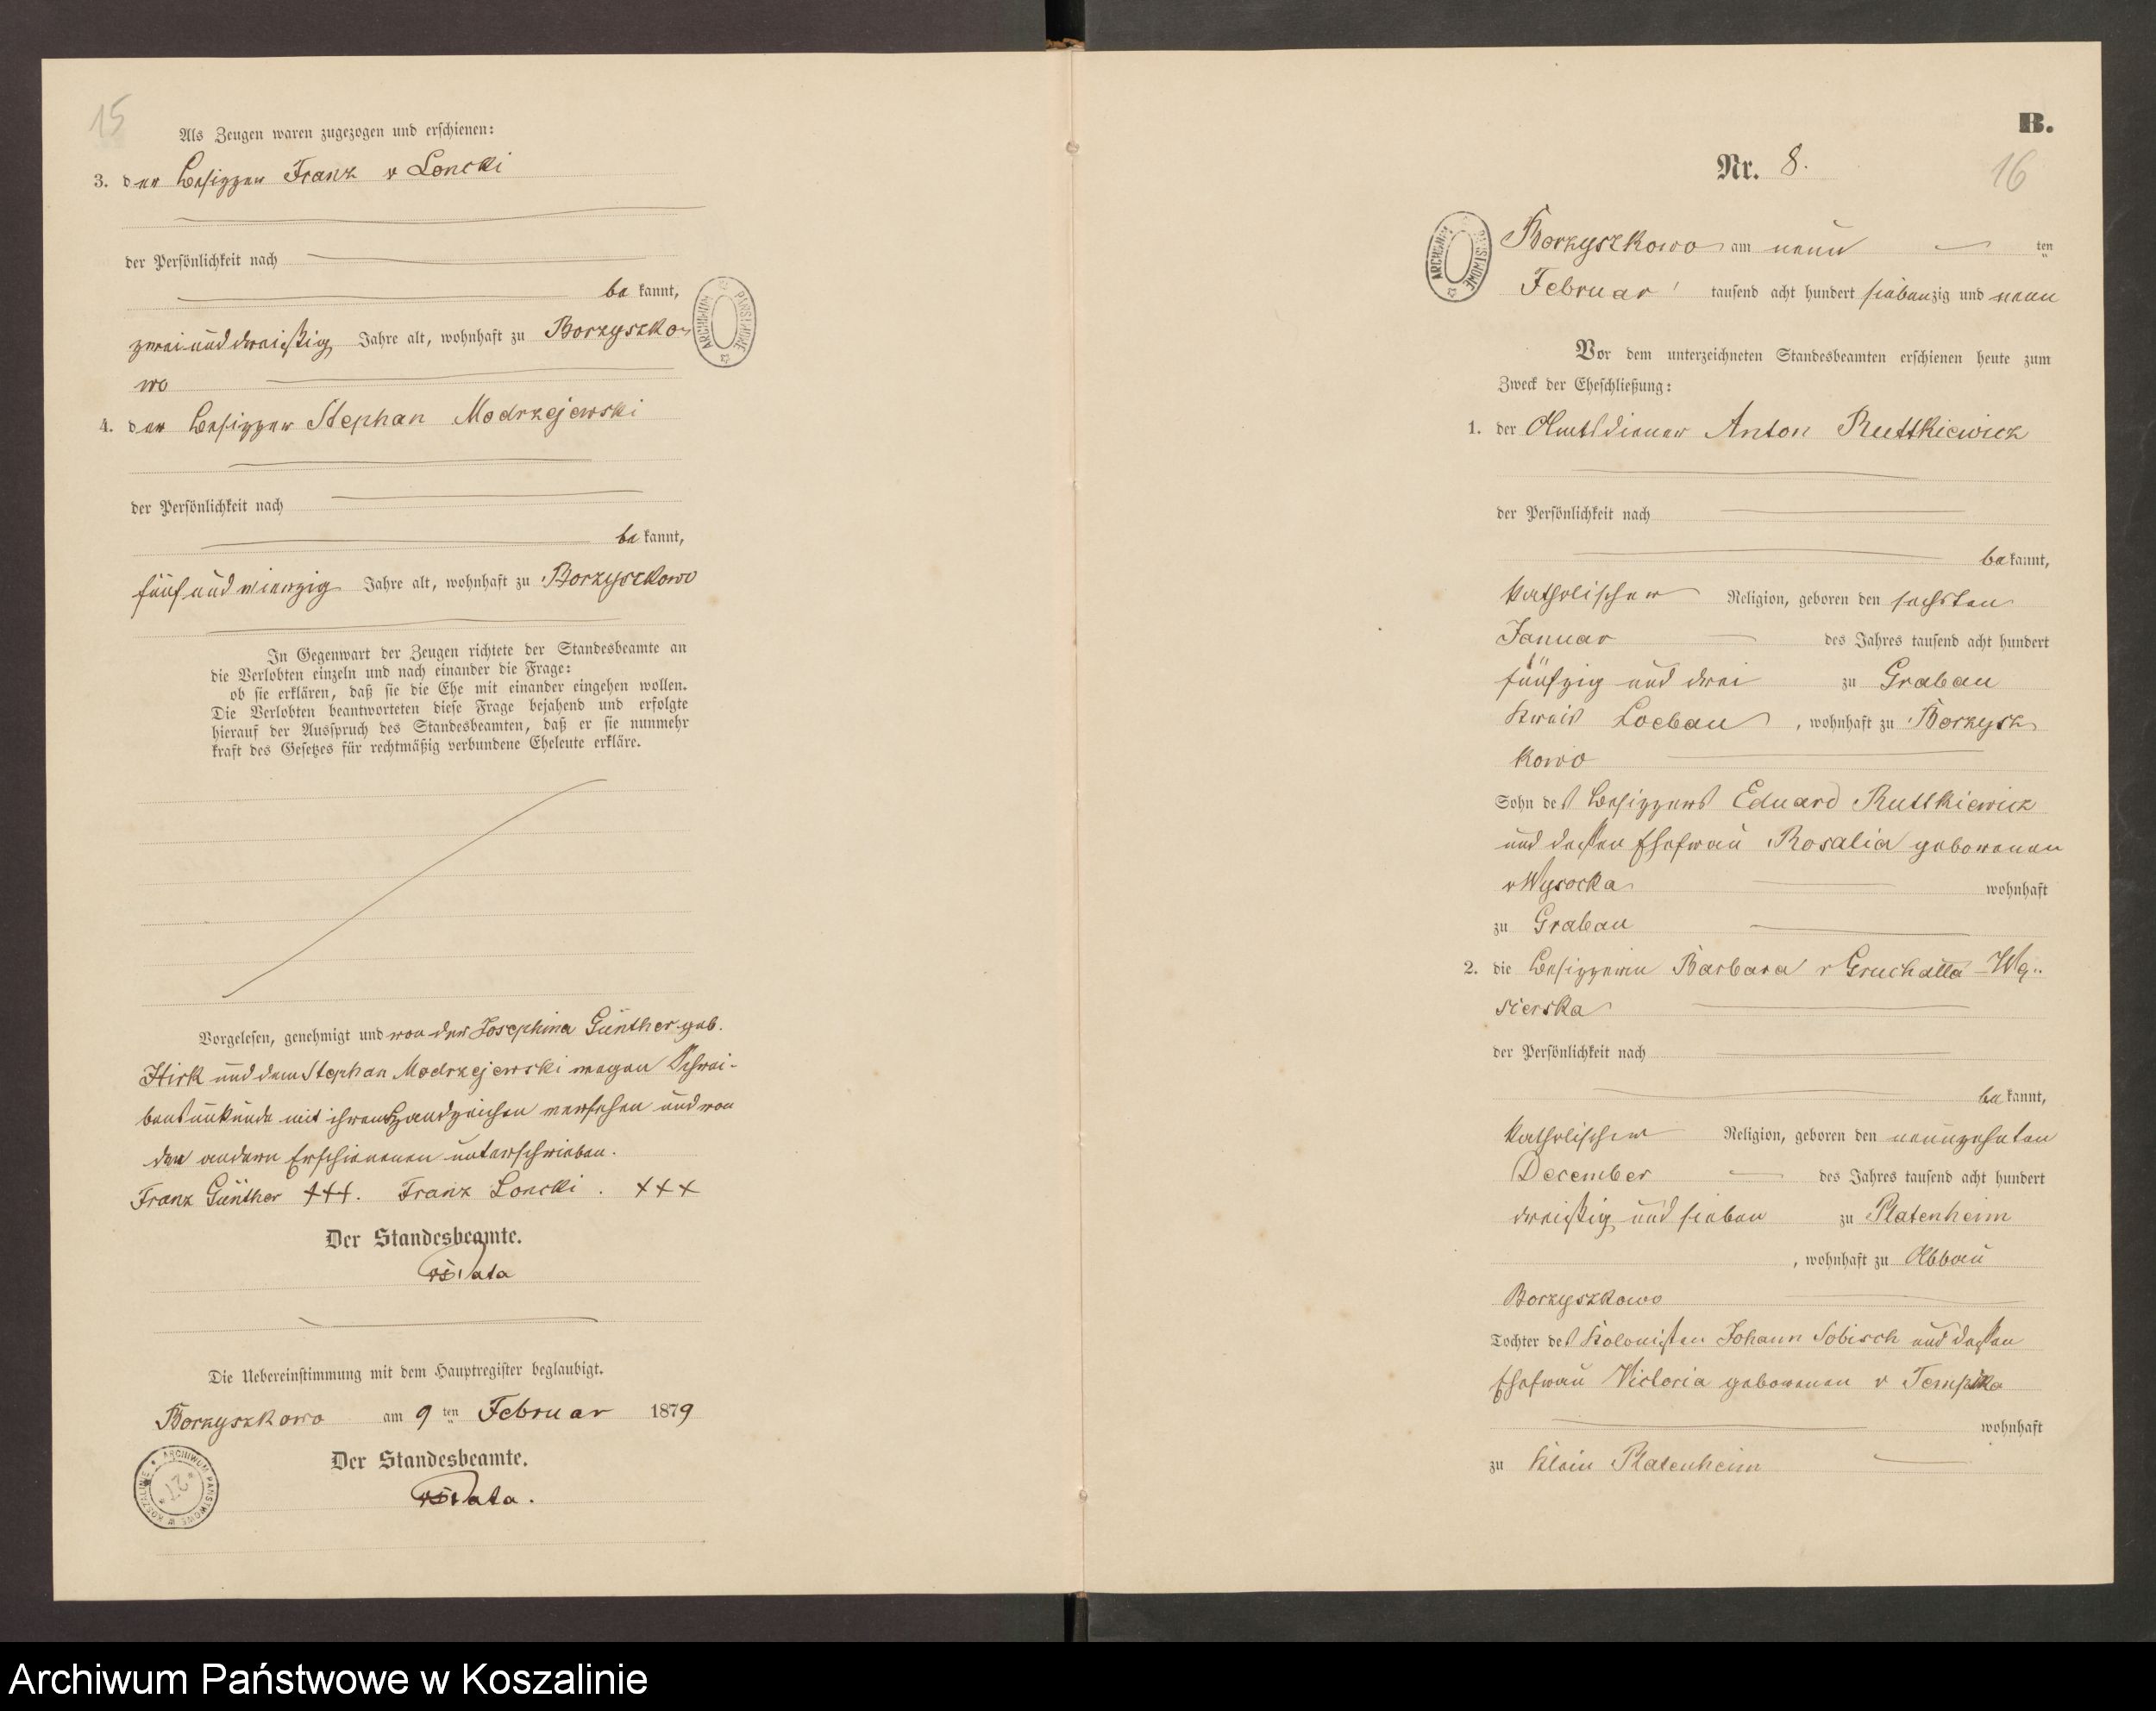 15
Als Zeugen waren zugezogen und erschienen:
3. der Besitzer Franz v Loncki
der Persönlichkeit nach
be kannt,
zwei und dreißig Jahre alt, wohnhaft zu Borzyszko-
wo
4. der Besitzer Stephan Modrzejewski
der Persönlichkeit nach
be kannt,
fünf und vierzig Jahre alt, wohnhaft zu Borzyszkowo
In Gegenwart der Zeugen richtete der Standesbeamte an
die Verlobten einzeln und nach einander die Frage:
ob sie erklären, daß sie die Ehe mit einander eingehen wollen.
Die Verlobten beantworteten diese Frage bejahend und erfolgte
hierauf der Ausspruch des Standesbeamten, daß er sie nunmehr
kraft des Gesetzes für rechtmäßig verbundene Eheleute erkläre.
Vorgelesen, genehmigt und von der Josephina Günther geb.
Hirk und dem Stephan Modrzejewski wegen Schrei-
bensunkunde mit ihren Handzeichen versehen und von
den andern Erschienenen unterschrieben.
Franz Günther +++. Franz Loncki. +++
Der Standesbeamte.
Die Uebereinstimmung mit dem Hauptregister beglaubigt.
Borzyszkowo am 9 ten Februar 1879
Der Standesbeamte.
ARCHIWUM PAŃSTWOWE W KOSZALINIE
B.
16
Nr. 8.
ARCHIWUM PAŃSTWOWE
Borzyszkowo am neun ten
Februar tausend acht hundert siebenzig und neun
Vor dem unterzeichneten Standesbeamten erschienen heute zum
Zweck der Eheschließung:
1. der Amtsdiener Anton Ruttkiewicz
der Persönlichkeit nach
be kannt,
katholischer Religion, geboren den sechsten
Januar des Jahres tausend acht hundert
fünfzig und drei zu Grabau
Kreis Loebau, wohnhaft zu Borzysz
kowo
Sohn des Besitzers Eduard Ruttkiewicz
und dessen Ehefrau Rosalia geborenen
v Wysocka wohnhaft
zu Grabau
2. die Besitzerin Barbara v Gruchalla - Wę-
sierska
der Persönlichkeit nach
be kannt,
katholischer Religion, geboren den neunzehnten
December des Jahres tausend acht hundert
dreißig und sieben zu Platenheim
, wohnhaft zu Abbau
Borzyszkowo
Tochter des Kolonisten Johann Sobisch und dessen
Ehefrau Victoria geborenen v
wohnhaft
zu Klein Platenheim
Archiwum Państwowe w Koszalinie